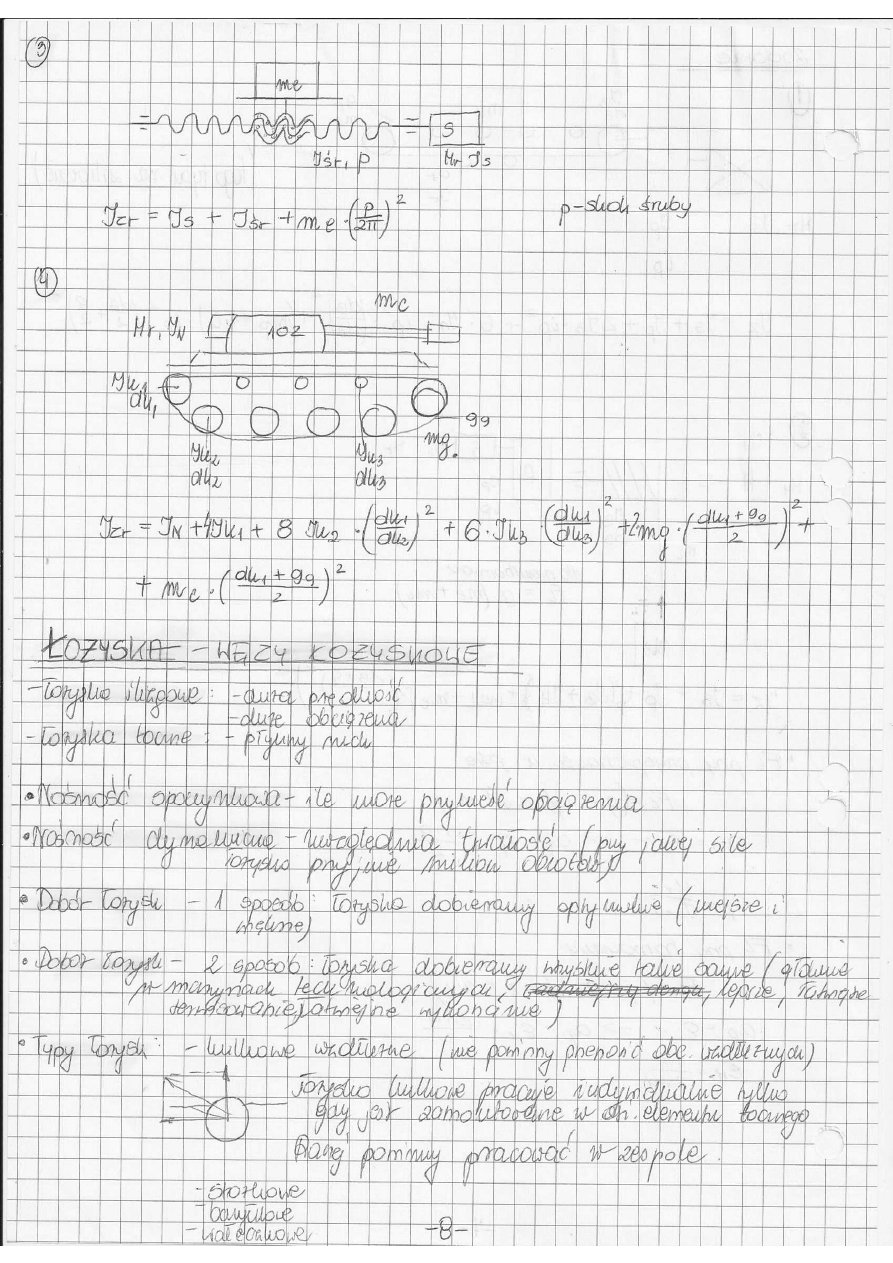 3
me
S
Jśr, p
Mr Js
Jzr = Js + Jśr + me · (p/2π)²
p-skok śruby
4
mc
Mr, JN
102
Jk1
dk1
gg
mg.
Jk2
Jk3
dk2
dk3
Jzr = JN + 4Jk1 + 8 Jk2 · (dk1/dk2)² + 6 · Jk3 · (dk1/dk3)² + 2·mg · (dk1 + gg/2)² +
+ mc · (dk1 + gg/2)²
ŁOŻYSKA - WĘZŁY ŁOŻYSKOWE
- Łożyska ślizgowe: - duża prędkość
- duże obciążenia
- Łożyska toczne: - płynny ruch
• Nośność spoczynkowa - ile może przynieść obciążenia
• Nośność dynamiczna - uwzględnia trwałość (przy jakiej sile
łożysko przyjmie milion obrotów)
• Dobór łożysk - 1 sposób: łożyska dobieramy optymalnie (miejsce i
• Dobór łożysk - 2 sposób: łożyska dobieramy wszystkie takie same (głównie
w maszynach technologicznych, lepsze, łatwiejsze
wykonanie)
• Typy łożysk: - kulkowe wzdłużne (nie powinny przenosić obc. wzdłużnych)
Łożysko kulkowe pracuje indywidualnie tylko
gdy jest zamontowane w śr. elementu tocznego
Raczej powinny pracować w zespole.
- skośne
- baryłkowe
- wałeczkowe
-8-